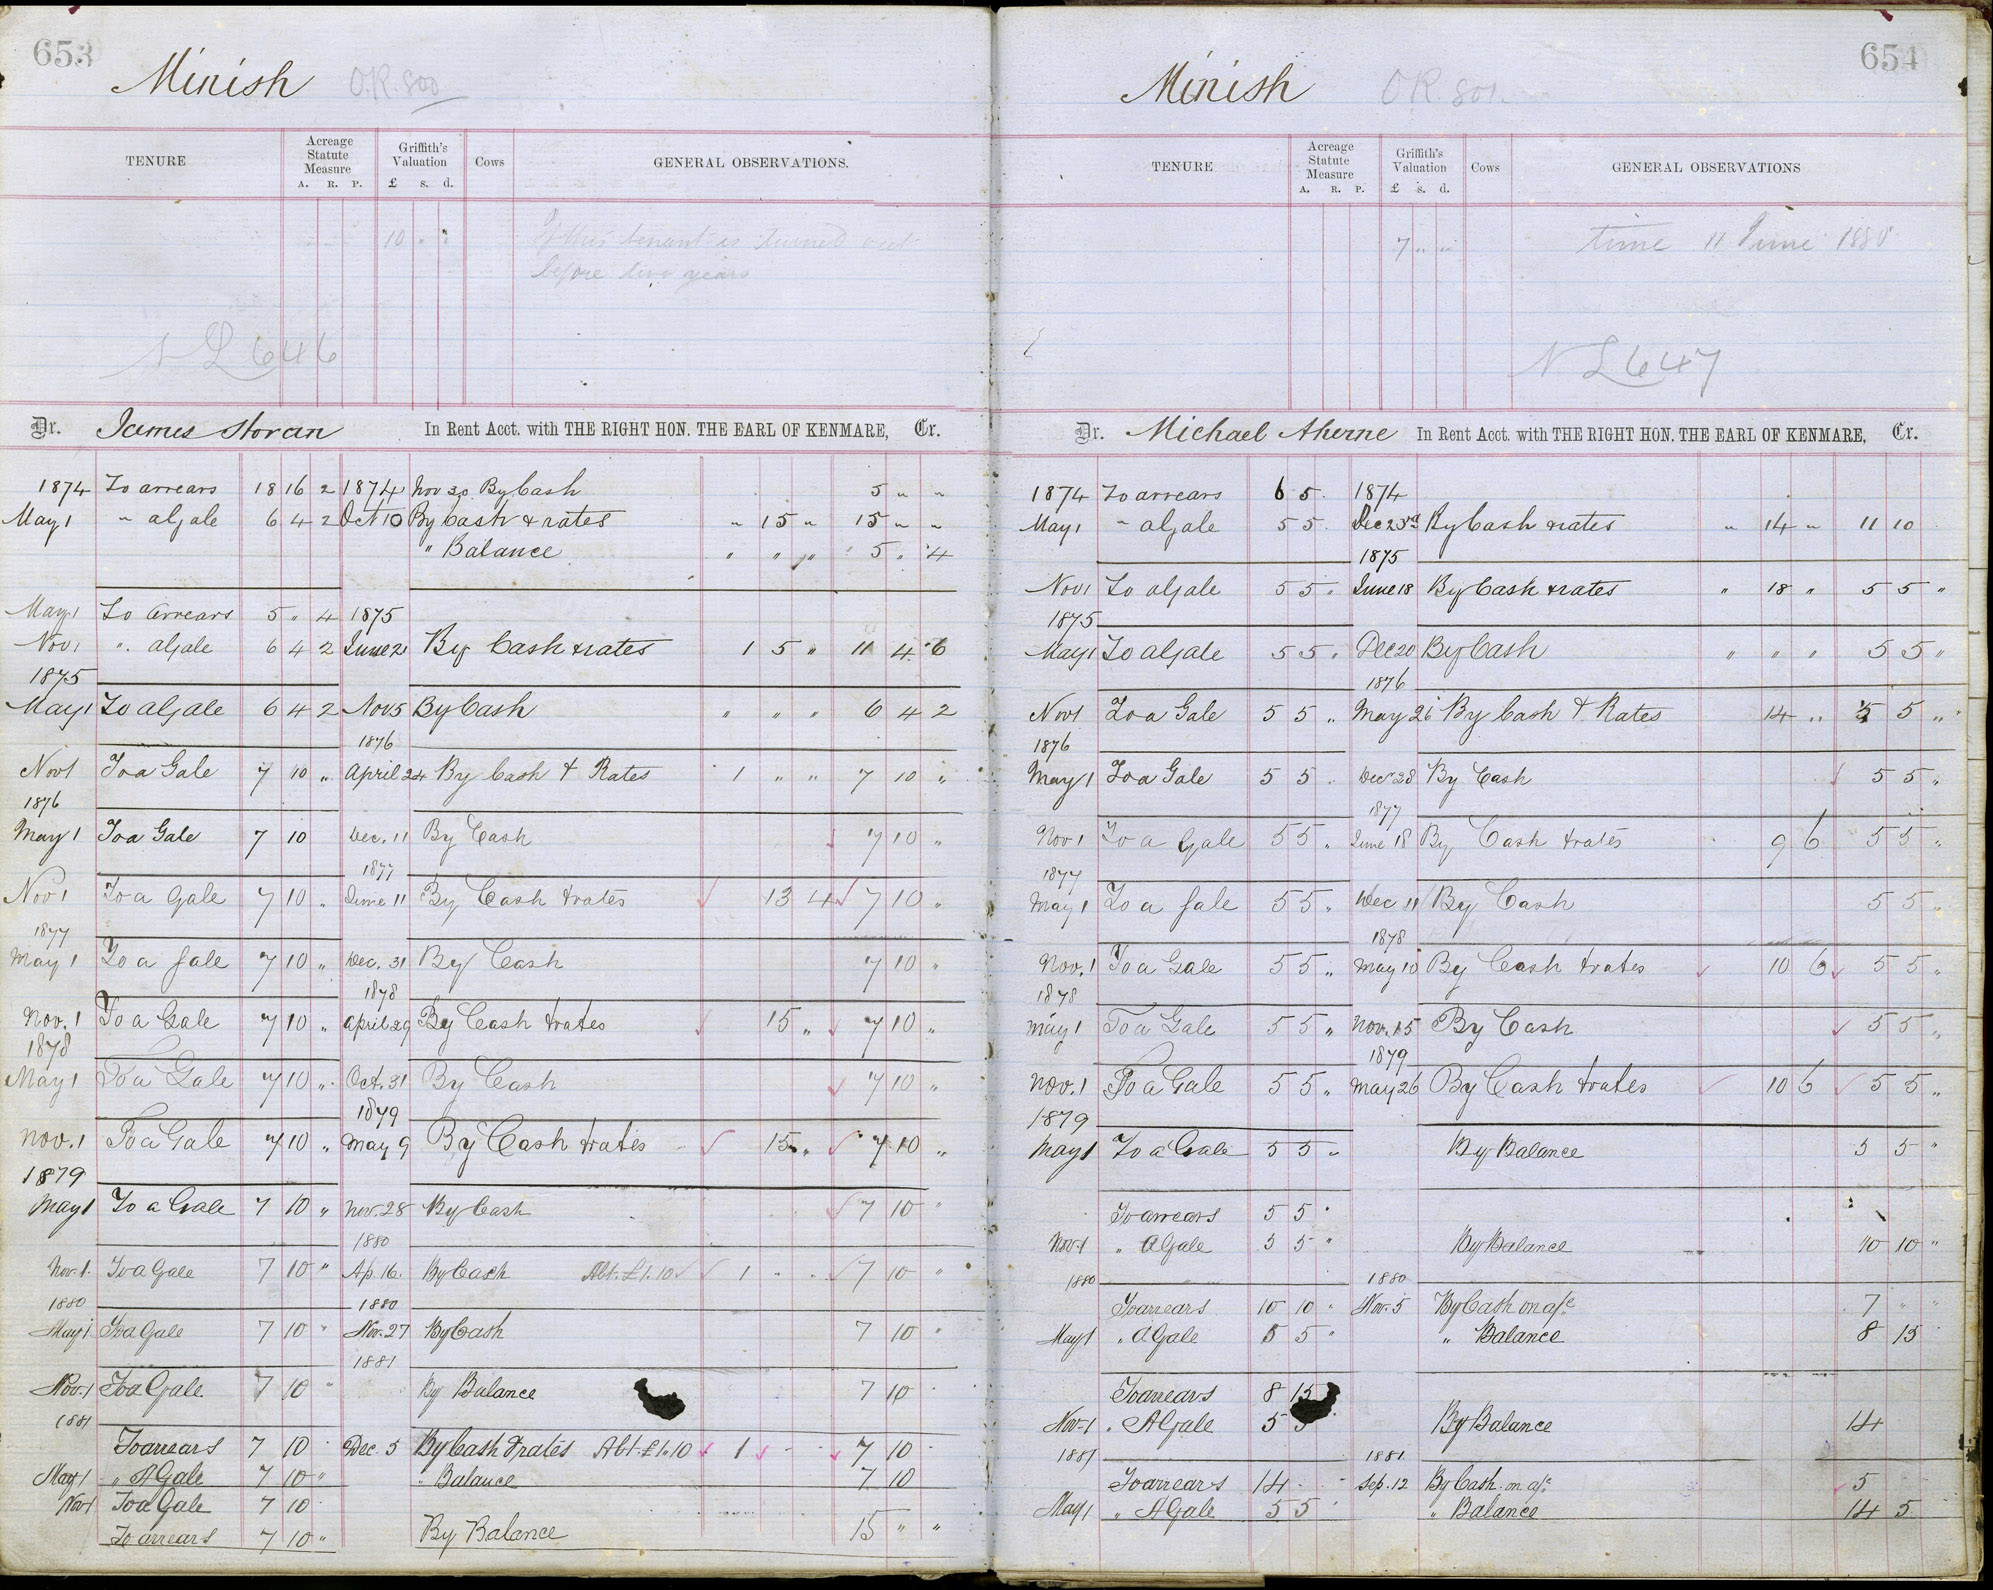 653
Minish O.R. 800
TENURE Acreage Statute Measure A. R. P. Griffith's Valuation £ s. d. Cows GENERAL OBSERVATIONS.
10 " " If this tenant is turned out
before two years
N L 646
Dr. James Horan In Rent Acct. with THE RIGHT HON. THE EARL OF KENMARE, Cr.
1874 To arrears 18 16 2 1874 Nov 30 By Cash 5 " "
May 1 " a Gale 6 4 2 Oct 10 By Cash & rates " 15 " 15 " "
" Balance " " " 5 " 4
May 1 To arrears 5 " 4 1875
Nov 1 " a Gale 6 4 2 June 21 By Cash & rates 1 5 " 11 4 6
1875
May 1 To a Gale 6 4 2 Nov 5 By Cash " " " 6 4 2
1876
Nov 1 To a Gale 7 10 " April 24 By Cash & Rates 1 " " 7 10 "
1876
May 1 To a Gale 7 10 Dec. 11 By Cash 7 10 "
1877
Nov 1 To a Gale 7 10 " June 11 By Cash & rates 13 4 7 10 "
1877
May 1 To a Gale 7 10 " Dec. 31 By Cash 7 10 "
1878
Nov. 1 To a Gale 7 10 " April 29 By Cash & rates 15 " 7 10 "
1878
May 1 To a Gale 7 10 " Oct. 31 By Cash 7 10 "
1879
Nov. 1 To a Gale 7 10 " May 9 By Cash & rates 15 " 7 10 "
1879
May 1 To a Gale 7 10 " Nov. 28 By Cash 7 10 "
1880
Nov. 1 To a Gale 7 10 " Ap. 16. By Cash Abt. £1.10 1 " " 7 10 "
1880 1880
May 1 To a Gale 7 10 " Nov. 27 By Cash 7 10 "
1881
Nov. 1 To a Gale 7 10 " By Balance 7 10
1881
To arrears 7 10 Dec. 5 By Cash & rates Abt. £1.10 1 7 10
May 1 " A Gale 7 10 " " Balance 7 10
Nov 1 To a Gale 7 10
To arrears 7 10 " By Balance 15 " "
654
Minish O.R. 801.
TENURE Acreage Statute Measure A. R. P. Griffith's Valuation £ s. d. Cows GENERAL OBSERVATIONS
7 " " time 11 June 1880
N L 647
Dr. Michael Aherne In Rent Acct. with THE RIGHT HON. THE EARL OF KENMARE, Cr.
1874 To arrears 6 5 1874
May 1 " a Gale 5 5 Dec 23rd By Cash & rates " 14 " 11 10
1875
Nov 1 To a Gale 5 5 " June 18 By Cash & rates " 18 " 5 5 "
1875
May 1 To a Gale 5 5 " Dec 20 By Cash " " " 5 5 "
1876
Nov 1 To a Gale 5 5 " May 26 By Cash & Rates 14 " 5 5 "
1876
May 1 To a Gale 5 5 Dec 28 By Cash 5 5 "
1877
Nov 1 To a Gale 5 5 " June 18 By Cash & rates 9 6 5 5 "
1877
May 1 To a Gale 5 5 " Dec 11 By Cash 5 5 "
1878
Nov. 1 To a Gale 5 5 " May 10 By Cash & rates 10 6 5 5 "
1878
May 1 To a Gale 5 5 " Nov. 15 By Cash 5 5 "
1879
Nov. 1 To a Gale 5 5 " May 26 By Cash & rates 10 6 5 5 "
1879
May 1 To a Gale 5 5 " By Balance 5 5 "
To arrears 5 5 "
Nov. 1 " A Gale 5 5 " By Balance 10 10 "
1880 1880
To arrears 10 10 " Nov. 5 By Cash on a/c 7 " "
May 1 " A Gale 5 5 " " Balance 8 15
To arrears 8 15
Nov. 1 " A Gale 5 5 By Balance 14
1881 1881
To arrears 14 Sep. 12 By Cash on a/c 5
May 1 " A Gale 5 5 " Balance 14 5